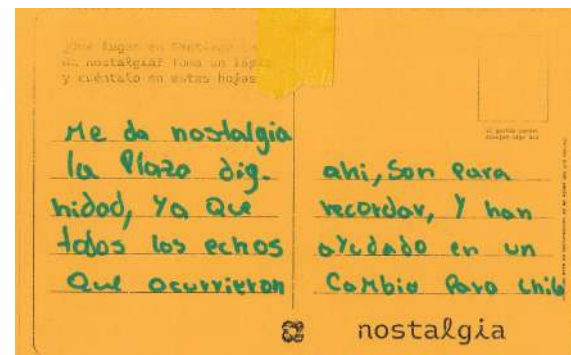 ¿Qué lugar en Santiago te
da nostalgia? Toma un lápiz
y cuéntalo en estas hojas
Me da nostalgia
la Plaza dig-
nidad, Ya Que
todos los echos
Que ocurrieron
ahi, Son Para
recordar, Y han
ayudado en un
Cambio Para Chile
nostalgia